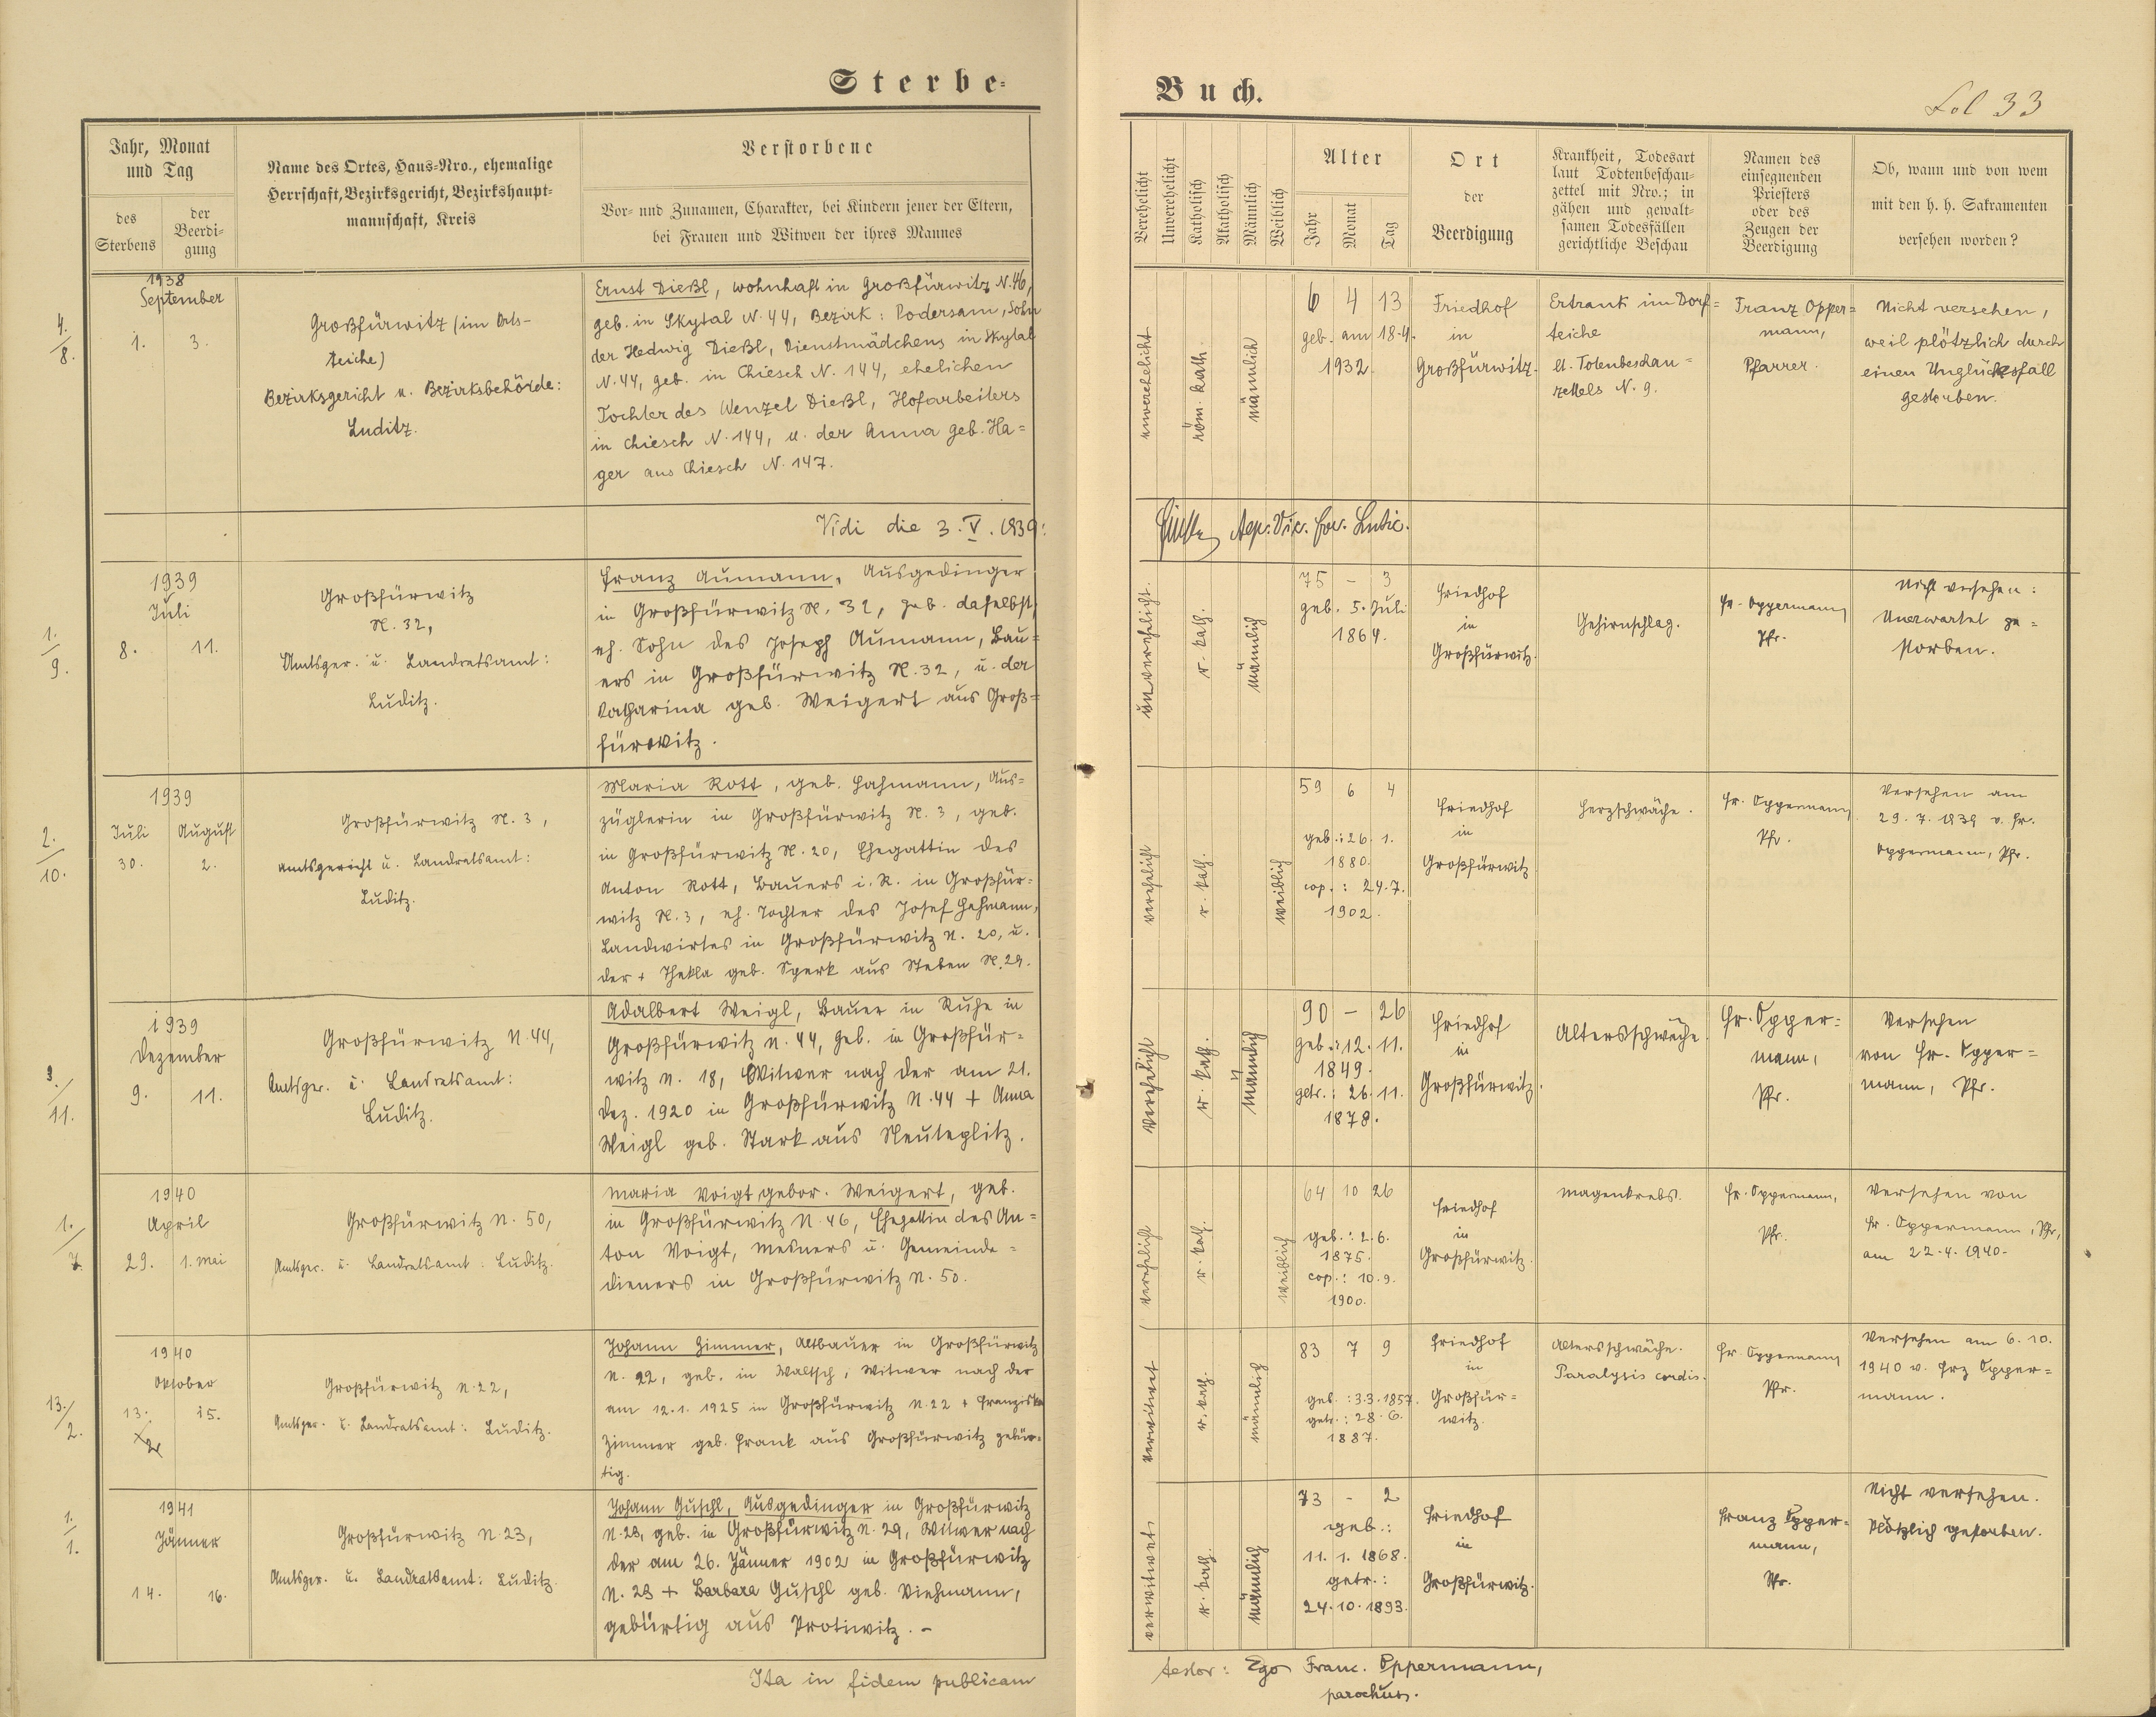 Sterbe-
Buch.
Fol 33
Jahr, Monat
und Tag
des
Sterbens
der
Beerdi-
gung
Name des Ortes, Haus-Nro., ehemalige
Herrschaft, Bezirksgericht, Bezirkshaupt-
mannschaft, Kreis
Verstorbene
Vor- und Zunamen, Charakter, bei Kindern jener der Eltern,
bei Frauen und Witwen der ihres Mannes
Verehelicht
Unverehelicht
Katholisch
Akatholisch
Männlich
Weiblich
Alter
Jahr
Monat
Tag
Ort
der
Beerdigung
Krankheit, Todesart
laut Todtenbeschau-
zettel mit Nro.; in
gähen und gewalt-
samen Todesfällen
gerichtliche Beschau
Namen des
einsegnenden
Priesters
oder des
Zeugen der
Beerdigung
Ob, wann und von wem
mit den h. h. Sakramenten
versehen worden?
4.
8.
1938
September
1.
3.
Großfürwitz (im Orts-
teiche)
Bezirksgericht u. Bezirksbehörde:
Luditz.
Ernst Dießl, wohnhaft in Großfürwitz N. 46,
geb. in Skytal N. 44, Bezirk: Podersam, Sohn
der Hedwig Dießl, Dienstmädchens in Skytal
N. 44, geb. in Chiesch N. 144, ehelichen
Tochter des Wenzel Dießl, Hofarbeiters
in Chiesch N. 144, u. der Anna geb. Ha=
ger aus Chiesch N. 147.
unverehelicht
röm. kath.
männlich
6 4 13
geb. am 18.4.
1932.
Friedhof
in
Großfürwitz.
Ertrank im Dorf=
teiche
lt. Totenbeschau=
zettels N. 9.
Franz Opper=
mann,
Pfarrer.
Nicht versehen,
weil plötzlich durch
einen Unglücksfall
gestorben.
Vidi die 3. V. 1939:
Aep. Vic. for. Lutic.
1.
9.
1939
Juli
8.
11.
Großfürwitz
N. 32,
Amtsger. u. Landratsamt:
Luditz.
Franz Aumann, Ausgedinger
in Großfürwitz N. 32, geb. daselbst,
eh. Sohn des Joseph Aumann, Bau=
ers in Großfürwitz N. 32, u. der
Katharina geb. Weigert aus Groß=
fürwitz.
unverehelicht.
r. kath.
männlich
75 - 3
geb. 5. Juli
1864.
Friedhof
in
Großfürwitz.
Gehirnschlag.
Fr. Oppermann,
Pfr.
Nicht versehen:
Unerwartet ge=
storben.
2.
10.
1939
Juli
August
30.
2.
Großfürwitz N. 3,
Amtsgericht u. Landratsamt:
Luditz.
Maria Rott, geb. Hahmann, Aus=
züglerin in Großfürwitz N. 3, geb.
in Großfürwitz N. 20, Ehegattin des
Anton Rott, Bauers i. R. in Großfür=
witz N. 3, eh. Tochter des Josef Hahmann,
Landwirtes in Großfürwitz N. 20, u.
der + Thekla geb. Sperk aus Steben N. 29.
verehelicht
r. kath.
weiblich
59 6 4
geb.: 26. 1.
1880.
cop.: 24.7.
1902.
Friedhof
in
Großfürwitz
Herzschwäche.
Fr. Oppermann,
Pfr.
Versehen am
29. 7. 1939 v. Fr.
Oppermann, Pfr.
3.
11.
1939
Dezember
9.
11.
Großfürwitz N. 44,
Amtsger. u. Landratsamt:
Luditz.
Adalbert Weigl, Bauer in Ruhe in
Großfürwitz N. 44, geb. in Großfür=
witz N. 18, Witwer nach der am 21.
Dez. 1920 in Großfürwitz N. 44 + Anna
Weigl geb. Stark aus Neuteplitz.
Verehelicht
r. kath.
männlich
90 - 26
geb.: 12. 11.
1849.
getr.: 26. 11.
1878.
Friedhof
in
Großfürwitz.
Altersschwäche.
Fr. Opper=
mann,
Pfr.
Versehen
von Fr. Opper=
mann, Pfr.
1.
7.
1940
April
29.
1. Mai
Großfürwitz N. 50,
Amtsger. u. Landratsamt: Luditz.
Maria Voigt, gebor. Weigert, geb.
in Großfürwitz N. 46, Ehegattin des An=
ton Voigt, Mesners u. Gemeinde=
dieners in Großfürwitz N. 50.
verehelicht
r. kath.
weiblich
64 10 26
geb.: 2.6.
1875.
cop.: 10.9.
1900.
Friedhof
in
Großfürwitz.
Magenkrebs.
Fr. Oppermann,
Pfr.
Versehen von
Fr. Oppermann, Pfr.,
am 22.4.1940.
13.
2.
1940
Oktober
13.
15.
Großfürwitz N. 22,
Amtsger. u. Landratsamt: Luditz.
Johann Zimmer, Altbauer in Großfürwitz
N. 22, geb. in Waltsch, Witwer nach der
am 12.1.1925 in Großfürwitz N. 22 + Franziska
Zimmer geb. Frank aus Großfürwitz gebür=
tig.
verwitwet
r. kath.
männlich
83 7 9
geb.: 3.3.1857.
getr.: 28.6.
1887.
Friedhof
in
Großfür=
witz.
Altersschwäche.
Paralysis cordis.
Fr. Oppermann,
Pfr.
Versehen am 6. 10.
1940 v. Frz Opper=
mann.
1.
1.
1941
Jänner
14.
16.
Großfürwitz N. 23,
Amtsger. u. Landratsamt: Luditz.
Johann Guschl, Ausgedinger in Großfürwitz
N. 23, geb. in Großfürwitz N. 29, Witwer nach
der am 26. Jänner 1902 in Großfürwitz
N. 23 + Barbara Guschl geb. Viehmann,
gebürtig aus Protiwitz. -
verwitwet
r. kath.
männlich
73 - 2
geb.:
11. 1. 1868.
getr.:
24.10.1893.
Friedhof
in
Großfürwitz.
Franz Opper=
mann,
Pfr.
Nicht versehen.
Plötzlich gestorben.
Ita in fidem publicam
testor: Ego Franc. Oppermann,
parochus.